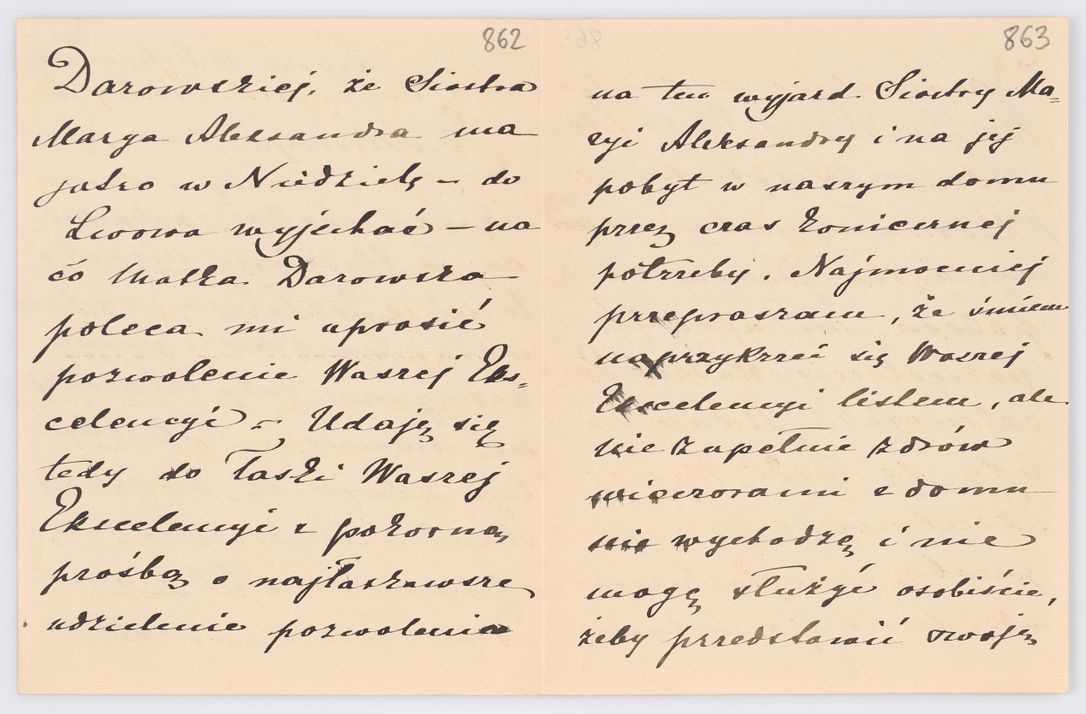 862
Darowskiej, że Siostra
Marya Aleksandra ma
jutro w Niedzielę – do
Lwowa wyjechać – na
co Matka Darowska
poleca mi uprosić
pozwolenie Waszej Eks-
celencyi – Udaję się
tedy do łaski Waszej
Ekscelencyi z pokorną
prośbą o najłaskawsze
udzielenie pozwolenia
863
na ten wyjazd Siostry Ma-
ryi Aleksandry i na jej
pobyt w naszym domu
przez czas koniecznej
potrzeby. Najmocniej
przepraszam, że śmiem
naprzykrzeć się Waszej
Ekscelencyi listem, ale
nie zupełnie zdrów
wieczorami z domu
nie wychodzę i nie
mogę służyć osobiście,
żeby przedstawić swoją